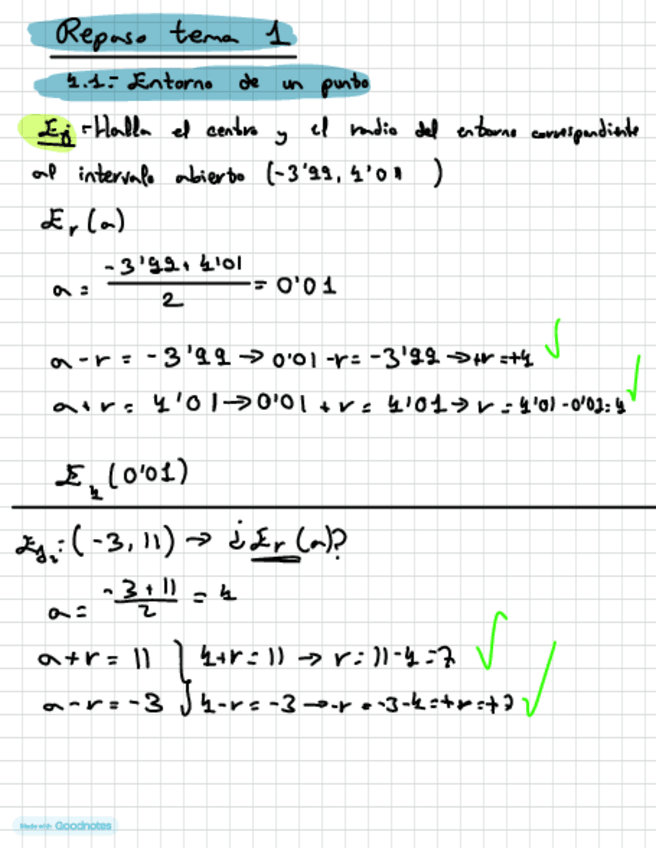 Repaso tema 1
1.1.- Entorno de un punto
Ej -Halla el centro y el radio del entorno correspondiente
al intervalo abierto (-3'99, 4'01)
Er (a)
a = -3'99 + 4'01 / 2 = 0'01
a - r = -3'99 → 0'01 - r = -3'99 → +r = +4
a + r = 4'01 → 0'01 + r = 4'01 → r = 4'01 - 0'01 = 4
E4 (0'01)
Ej: (-3, 11) → ¿Er (a)?
a = -3 + 11 / 2 = 4
a + r = 11 } 4 + r = 11 → r = 11 - 4 = 7
a - r = -3 } 4 - r = -3 → -r = -3 - 4 = +r = +7
Made with Goodnotes